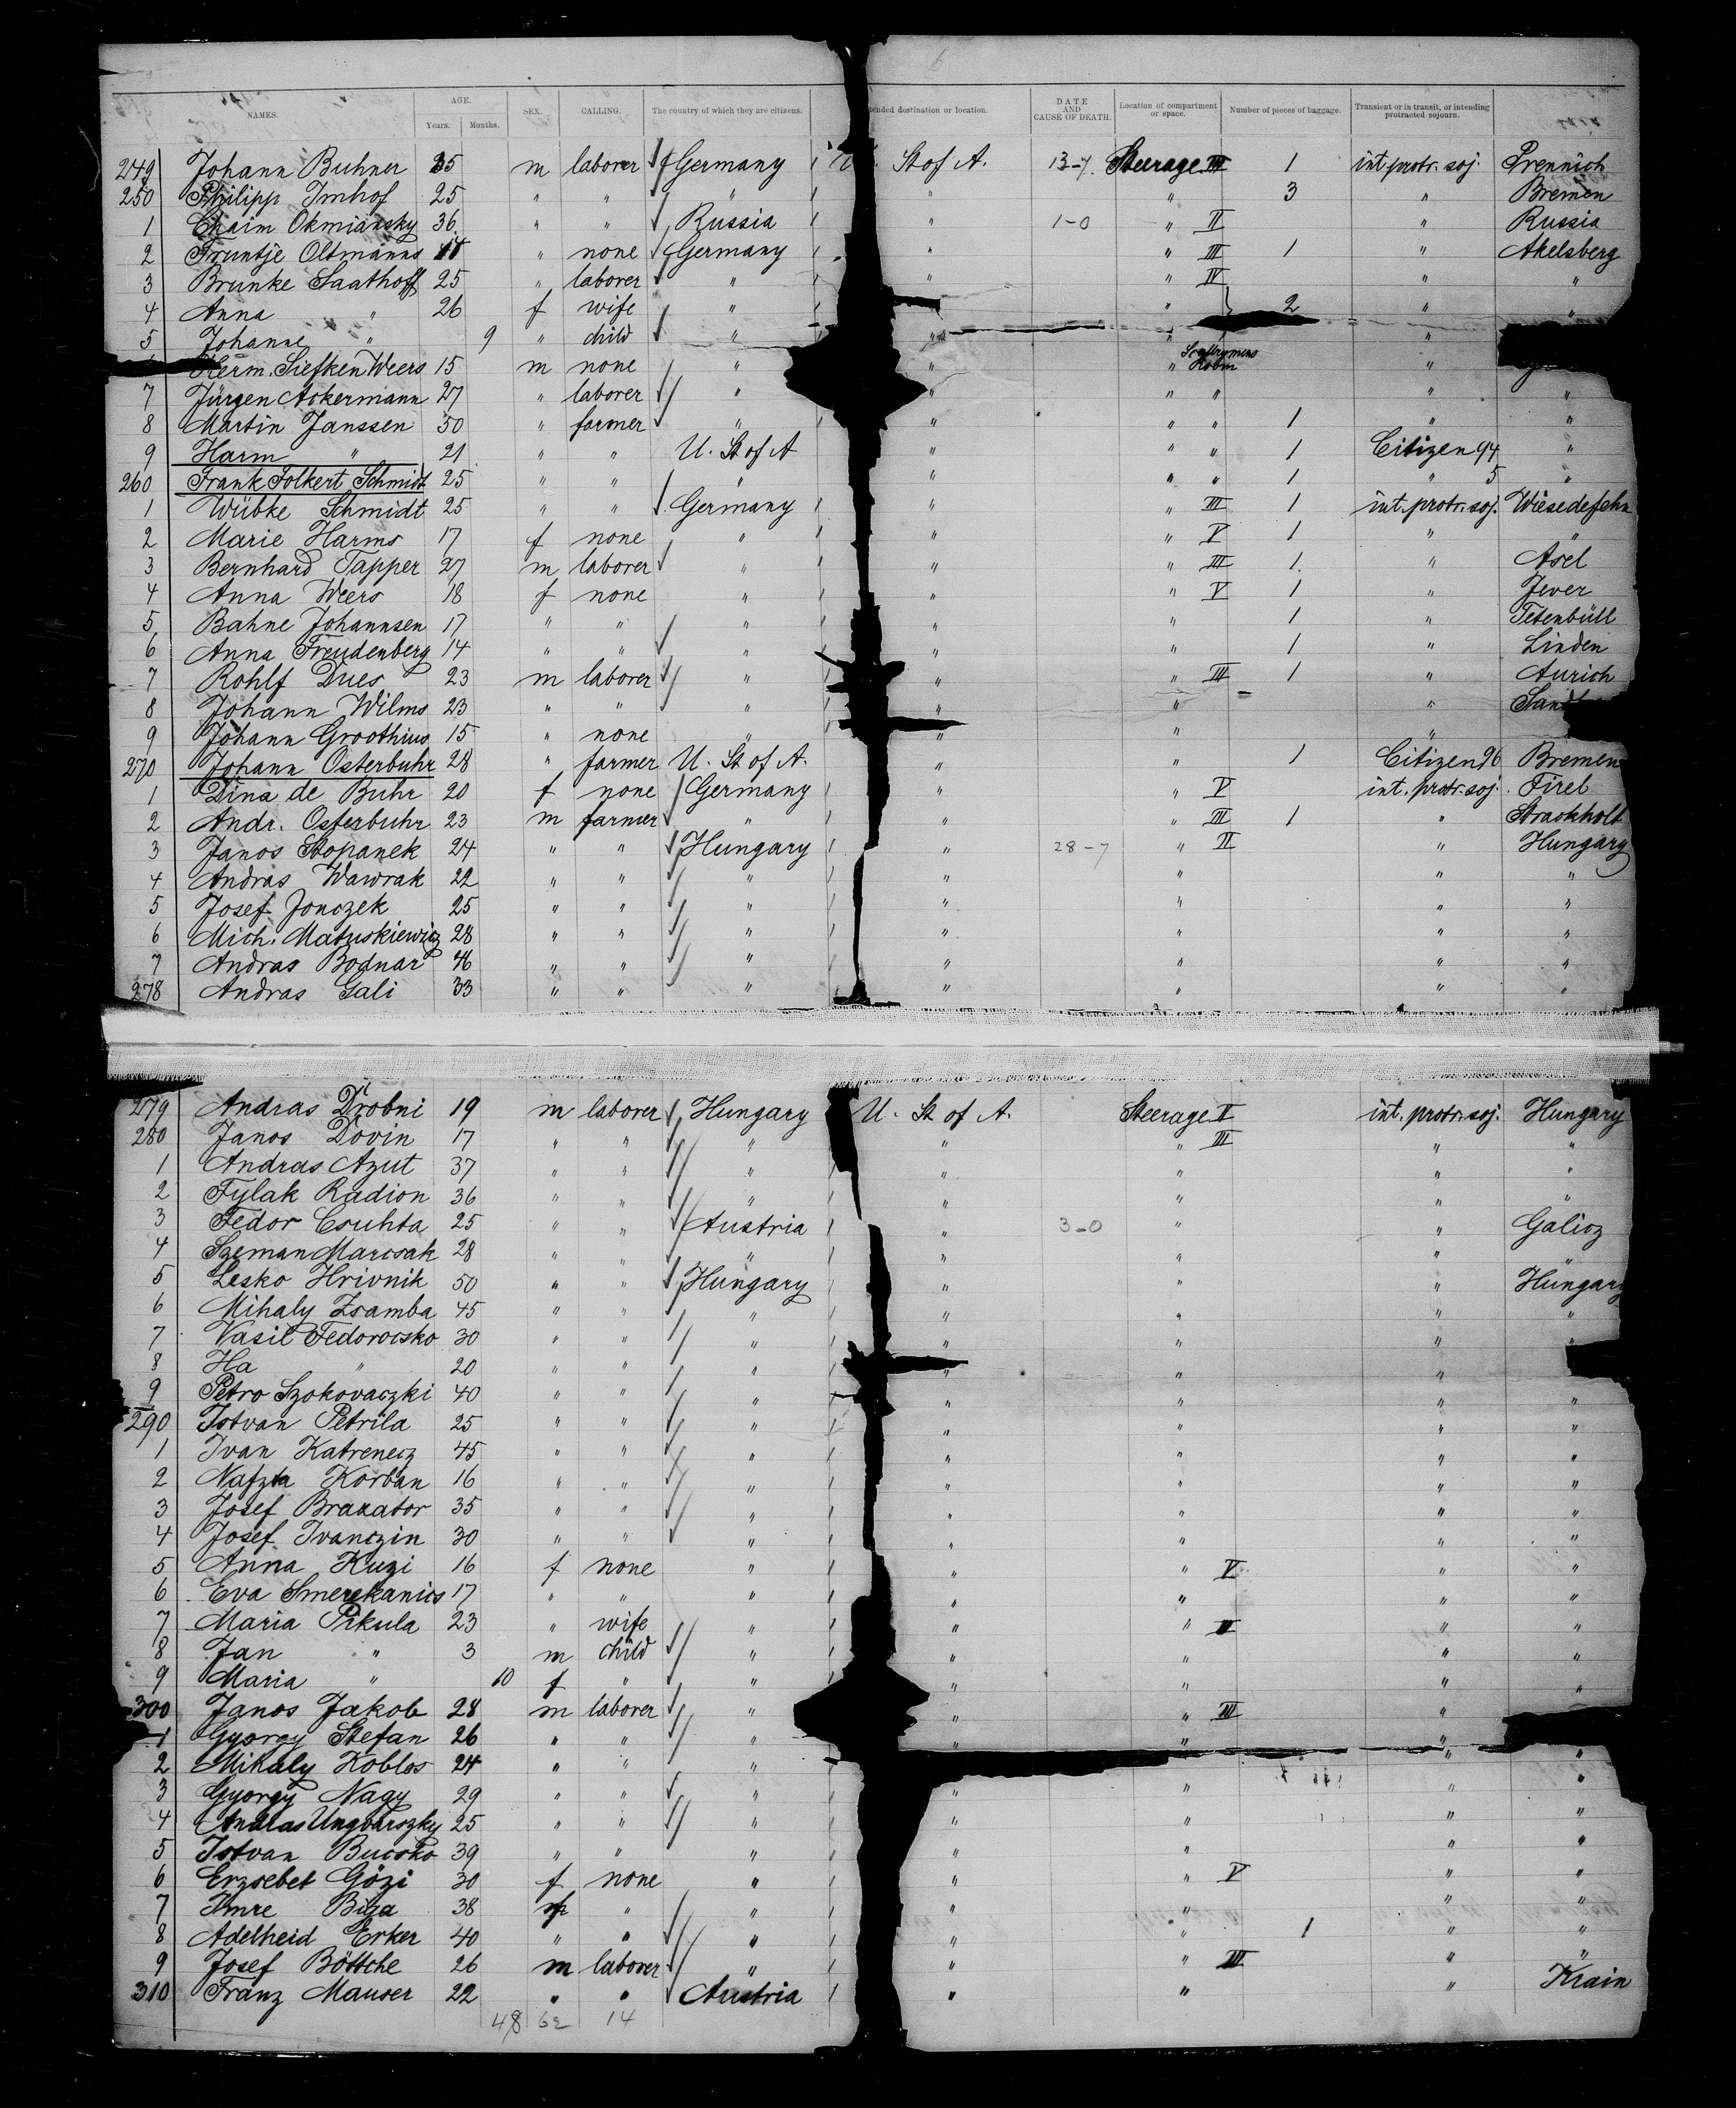 6
NAMES. AGE. Years. Months. SEX. CALLING. The country of which they are citizens. tended destination or location. DATE AND CAUSE OF DEATH. Location of compartment or space. Number of pieces of baggage. Transient or in transit, or intending protracted sojourn.
249 Johann Buhner 35 m laborer Germany U. St of A. 13-7. Steerage III 1 int. protr. soj. Prennich
250 Philipp Imhof 25 " " " " " 3 " Bremen
1 Chaim Okmiansky 36 " " Russia " 1-0 " II " Russia
2 Fruntje Oltmanns " none Germany " " III 1 " Akelsberg
3 Brunke Saathoff 25 " laborer " " " IV " "
4 Anna " 26 f wife " " 2 " "
5 Johanne " 9 " child " " " "
Herm. Siefken Weers 15 m none " " " Room "
7 Jürgen Ackermann 27 " laborer " " " " " "
8 Martin Janssen 50 " farmer " " " " 1 " "
9 Harm " 21 " " U. St of A " " " 1 Citizen 94 "
260 Frank Folkert Schmidt 25 " " " " " " 1 " 5 "
1 Wübke Schmidt 25 " " Germany " " III 1 int. protr. soj. Wiesedefehn
2 Marie Harms 17 f none " " " V 1 " "
3 Bernhard Tapper 27 m laborer " " " III 1. " Asel
4 Anna Weers 18 f none " " " V 1 " Jever
5 Bahne Johannsen 17 " " " " " 1 " Tetenbüll
6 Anna Freudenberg 14 " " " " " 1 " Linden
7 Rohlf Dues 23 m laborer " " " III 1 " Aurich
8 Johann Wilms 23 " " " " " " Sand
9 Johann Groothius 15 " none " " " "
270 Johann Osterbuhr 28 " farmer U. St of A. " " 1 Citizen 96 Bremen
1 Dina de Buhr 20 f none Germany " " V int. protr. soj. Firel
2 Andr. Osterbuhr 23 m farmer " " " III 1 " Strackholt
3 Janos Stopanek 24 " " Hungary " 28-7 " II " Hungary
4 Andras Wawrak 22 " " " " " " "
5 Josef Jonczek 25 " " " " " " "
6 Mich. Matuskiewicz 28 " " " " " " "
7 Andras Bodnar 46 " " " " " " "
278 Andras Gali 33 " " " " " " "
279 Andras Drobni 19 m laborer Hungary U. St of A. Steerage II int. protr. soj. Hungary
280 Janos Dovin 17 " " " " " III " "
1 Andras Azut 37 " " " " " " "
2 Fylak Radion 36 " " " " " " "
3 Fedor Csuhta 25 " " Austria " 3-0 " " Galicz
4 Szeman Marcsak 28 " " " " " " "
5 Lesko Hrivnik 50 " " Hungary " " " Hungary
6 Mihaly Zsamba 45 " " " " " " "
7 Vasil Fedorocsko 30 " " " " " " "
8 Ha " 20 " " " " " "
9 Petro Szokovaczki 40 " " " " " " "
290 Istvan Petrila 25 " " " " " " "
1 Ivan Katrenecz 45 " " " " " " "
2 Nafzta Korban 16 " " " " " " "
3 Josef Braxator 35 " " " " " " "
4 Josef Ivanczin 30 " " " " " " "
5 Anna Kuzi 16 f none " " " V " "
6 Eva Smerekanics 17 " " " " " " "
7 Maria Pikula 23 " wife " " " II " "
8 Jan " 3 m child " " " " "
9 Maria " 10 f " " " " " "
300 Janos Jakob 28 m laborer " " " III "
1 Gyorgy Stefan 26 " " " " " "
2 Mihaly Koblos 24 " " " " "
3 Gyorgy Nagy 29 " " " " " " "
4 Andras Ungvarszky 25 " " " " " " "
5 Istvan Bucsko 39 " " " " " " "
6 Erzsebet Gözi 30 f none " " " V " "
7 Imre Biga 38 " " " " " "
8 Adelheid Erker 40 " " " " " 1 " "
9 Josef Böttche 26 m laborer " " " III " "
310 Franz Mauser 22 " " Austria " " " Krain
48 62 14